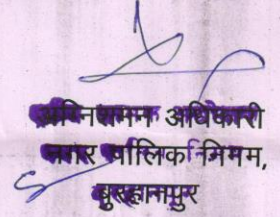 अग्निशमन अधिकारी
नगर पालिक निगम,
बुरहानपुर